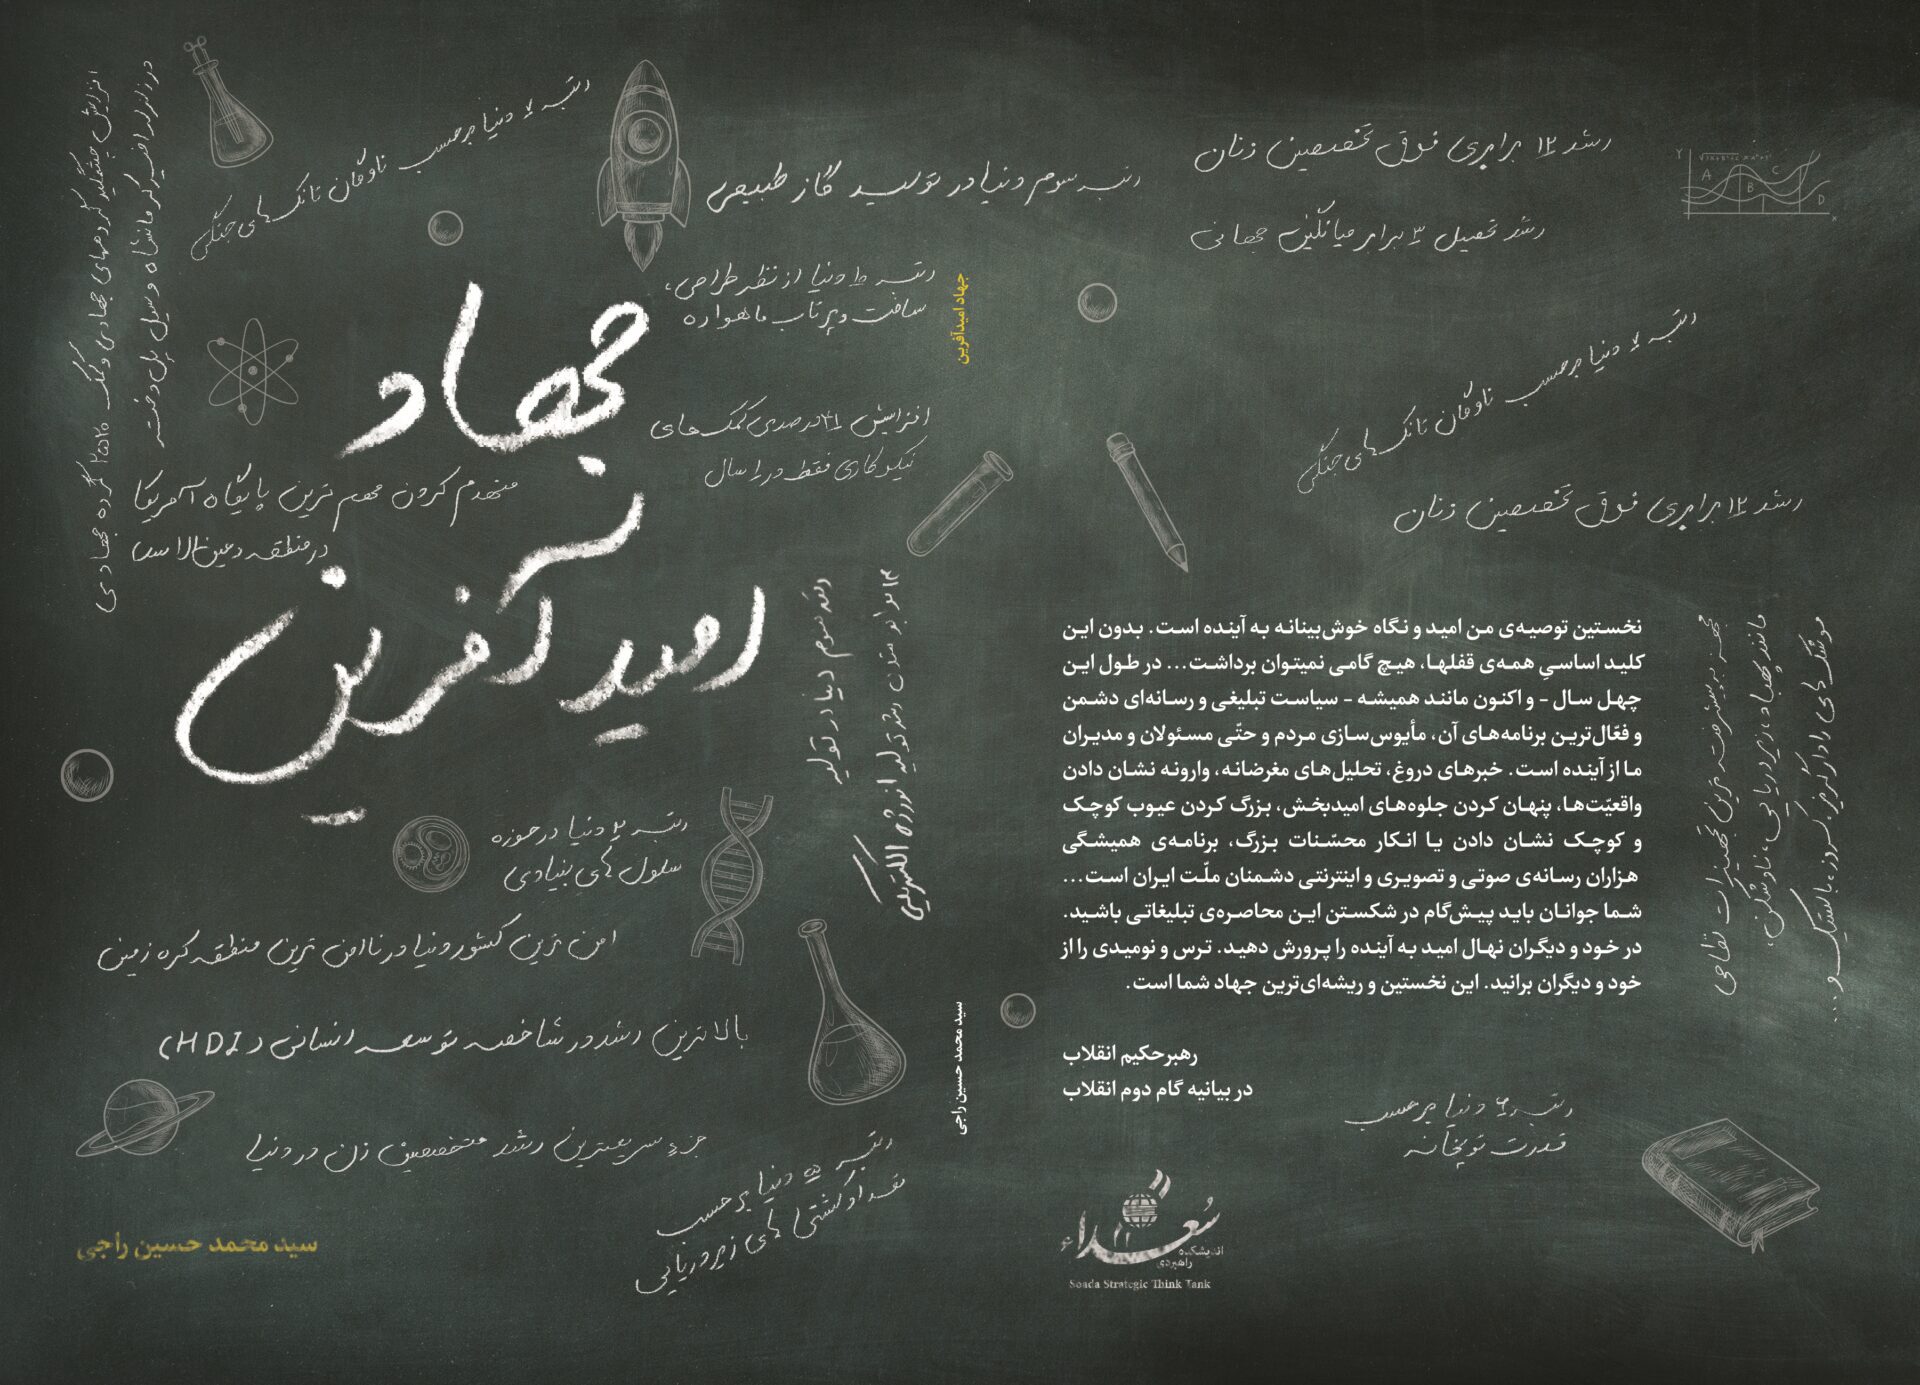 جهاد
امید آفرین
سید محمد حسین راجی
رتبه ۶ دنیا برحسب ناوگان تانک‌های جنگی
رتبه سوم دنیا در تولید گاز طبیعی
رتبه ۱۰ دنیا از نظر طراحی،
ساخت و پرتاب ماهواره
افزایش ۴۱ درصدی کمک‌های
نیکوکاری فقط در ۱ سال
منهدم کردن مهم ترین پایگاه آمریکا
در منطقه، عین الاسد
افزایش چشمگیر گروههای جهادی و کمک گروه جهادی
در زلزله اخیر کرمانشاه و سیل پل دختر
رتبه سوم دنیا در تولید
۱۳ برابر شدن رشد تولید انورژی الکتریکی
رتبه ۲ دنیا در حوزه
سلول های بنیادی
امن ترین کشور دنیا در ناامن ترین منطقه کره زمین
بالاترین رشد در شاخصه توسعه انسانی (HDI)
جزء سریعترین رشد متخصصین زن در دنیا
رتبه ۵ دنیا برحسب
تعداد کشتی های زیردریایی
جهاد امیدآفرین
سید محمد حسین راجی
رشد ۱۲ برابری فوق تخصصین زنان
رشد تحصیل ۳ برابر میانگین جهانی
Y
A
B
C
D
x
رتبه ۶ دنیا برحسب ناوگان تانک‌های جنگی
رشد ۱۲ برابری فوق تخصصین زنان
نخستین توصیه‌ی من امید و نگاه خوش‌بینانه به آینده است. بدون این
کلید اساسیِ همه‌ی قفلها، هیچ گامی نمیتوان برداشت... در طول این
چهل سال - و اکنون مانند همیشه - سیاست تبلیغی و رسانه‌ای دشمن
و فعّال‌ترین برنامه‌های آن، مأیوس‌سازی مردم و حتّی مسئولان و مدیران
ما از آینده است. خبرهای دروغ، تحلیل‌های مغرضانه، وارونه نشان دادن
واقعیّت‌ها، پنهان کردن جلوه‌های امیدبخش، بزرگ کردن عیوب کوچک
و کوچک نشان دادن یا انکار محسّنات بزرگ، برنامه‌ی همیشگی
هزاران رسانه‌ی صوتی و تصویری و اینترنتی دشمنان ملّت ایران است...
شما جوانان باید پیش‌گام در شکستن این محاصره‌ی تبلیغاتی باشید.
در خود و دیگران نهال امید به آینده را پرورش دهید. ترس و نومیدی را از
خود و دیگران برانید. این نخستین و ریشه‌ای‌ترین جهاد شما است.
رهبر حکیم انقلاب
در بیانیه گام دوم انقلاب
مجهز به پیشرفته ترین تجهیزات نظامی
مانند پهپاد، زیردریایی، ناوشکن،
موشک های رادار گریز، کروز، بالستیک و ...
رتبه ۶ دنیا برحسب
قدرت توپخانه
سُعداء
اندیشکده
راهبردی
Soada Strategic Think Tank